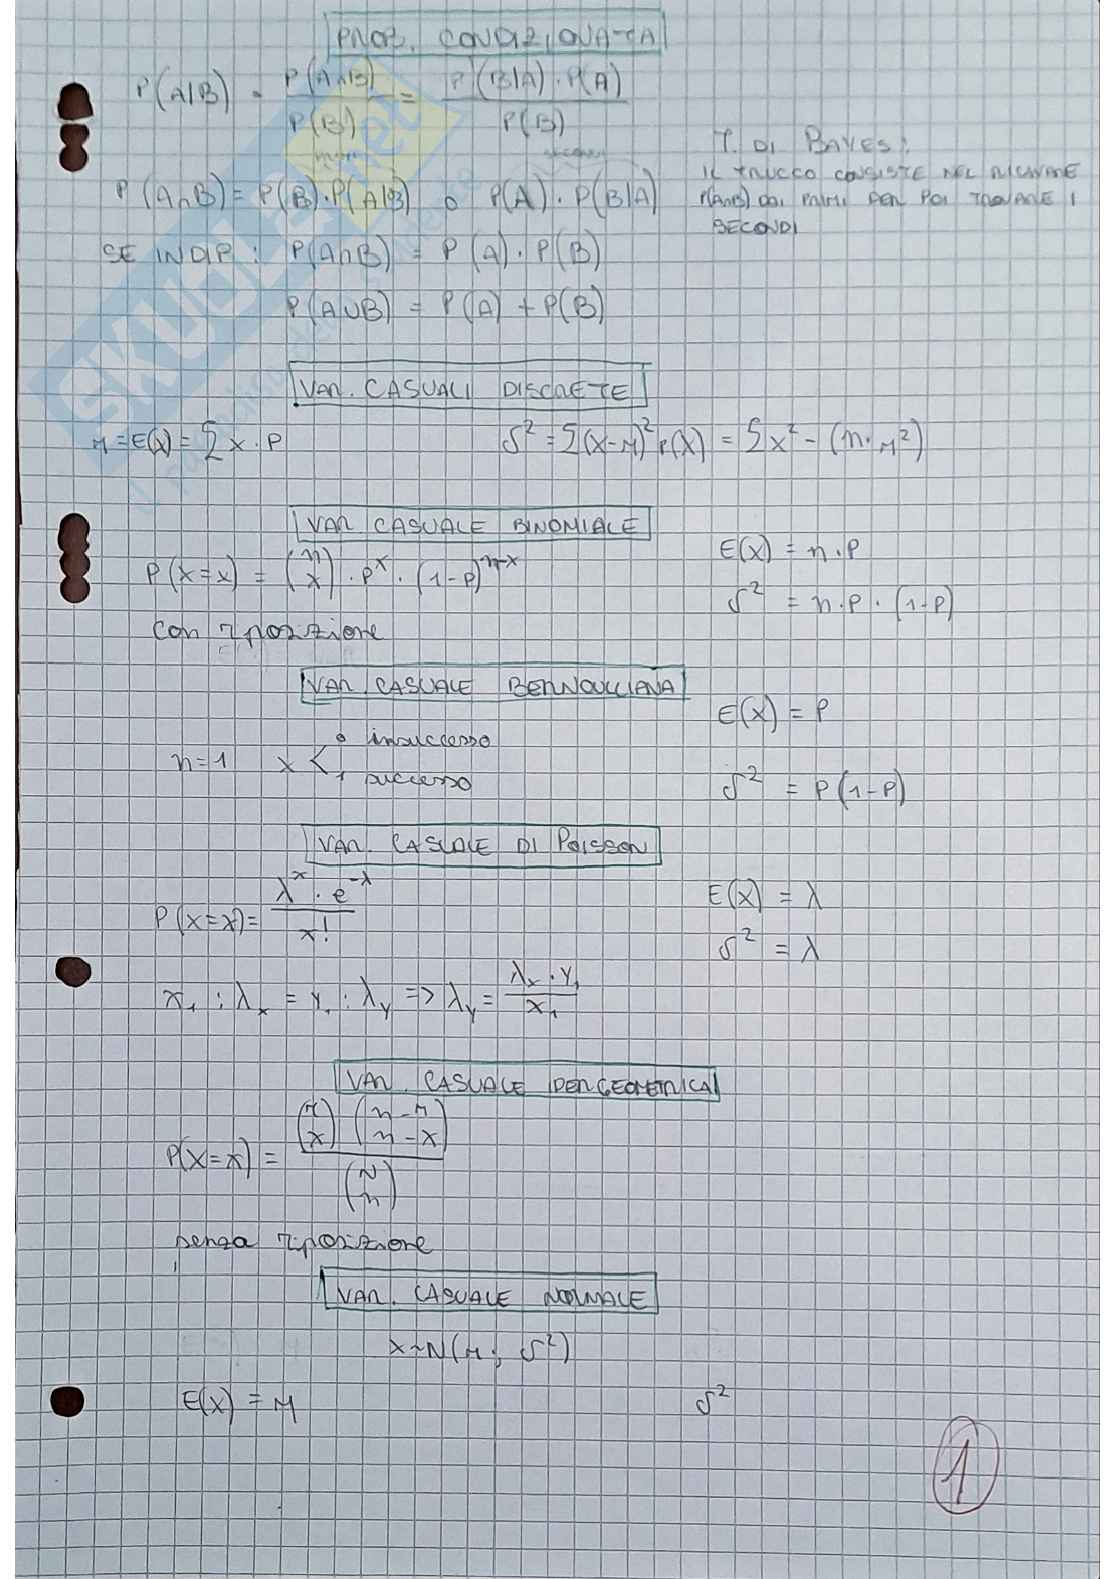 PROB. CONDIZIONATA
P(A|B) = P(A∩B)/P(B) = P(B|A)·P(A)/P(B)
T. DI BAYES:
IL TRUCCO CONSISTE NEL RICAVARE
P(A∩B) DAI PRIMI PER POI TROVARE I
SECONDI
P(A∩B) = P(B)·P(A|B) o P(A)·P(B|A)
SE INDIP: P(A∩B) = P(A)·P(B)
P(A∪B) = P(A) + P(B)
SKUOLA.net
VAR. CASUALI DISCRETE
μ = E(X) = Σ x·P
σ² = Σ(X-μ)² P(X) = Σx² - (n·μ²)
VAR. CASUALE BINOMIALE
P(X=x) = (n x)·p^x·(1-p)^(n-x)
E(X) = n·P
σ² = n·P·(1-P)
con riposizione
VAR. CASUALE BERNOULLIANA
E(X) = P
n=1 x < 0 insuccesso
1 successo
σ² = P(1-P)
VAR. CASUALE DI POISSON
P(X=x) = λ^x · e^-λ / x!
E(X) = λ
σ² = λ
x₁ : λx = y₁ : λy => λy = λx·y₁ / x₁
VAR. CASUALE IPERGEOMETRICA
P(X=x) = (r x) (n-r n-x) / (N n)
senza riposizione
VAR. CASUALE NORMALE
X~N(μ; σ²)
E(X) = μ
σ²
1